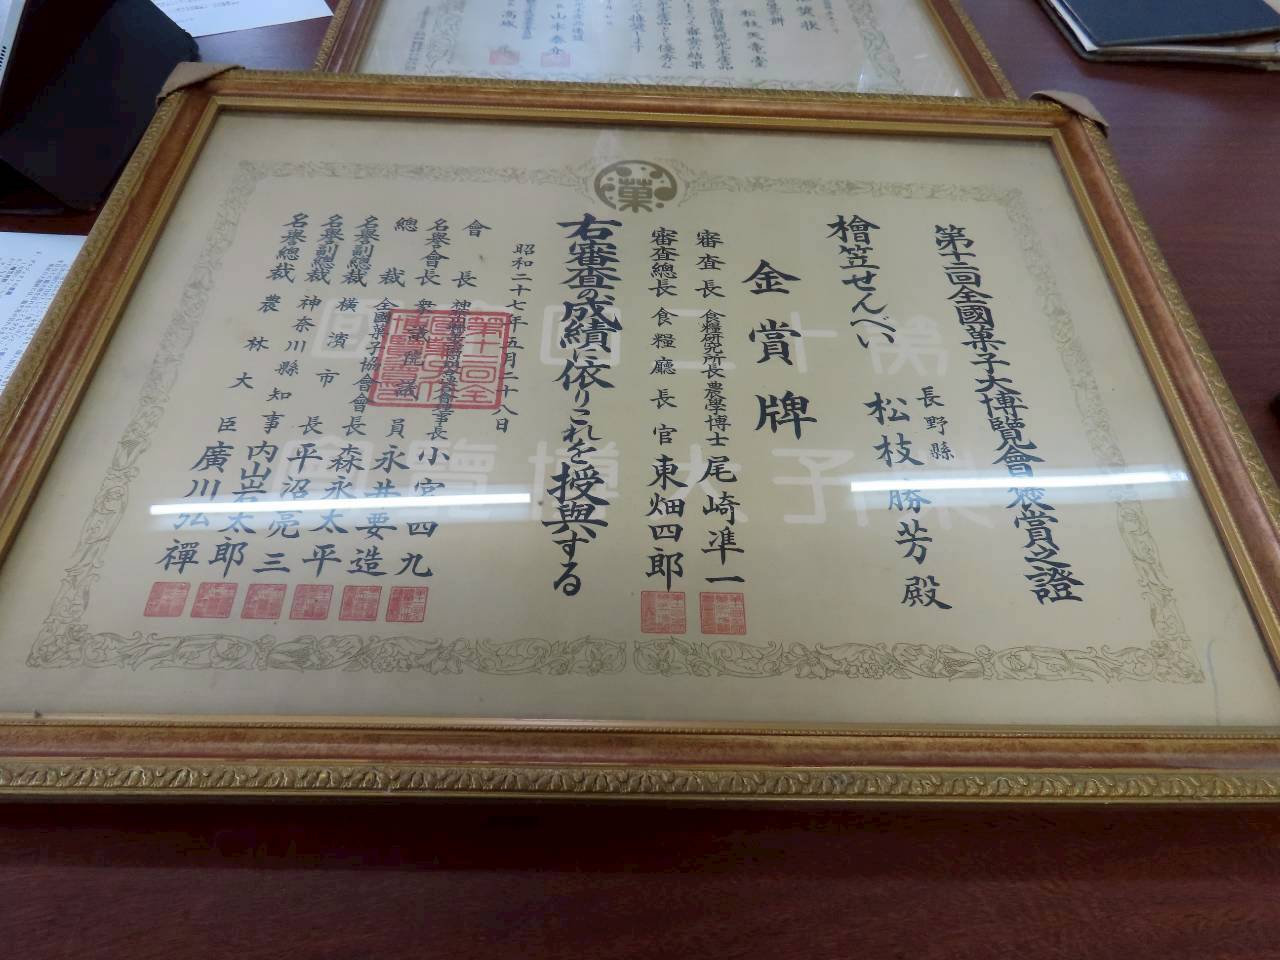 第十二回全國菓子大博覽會褒賞之證
檜笠せんべい
長野縣
松枝勝芳殿
金賞牌
審査長 食糧研究所長 農學博士 尾崎準一
審査總長 食糧廳長官 東畑四郎
右審査の成績に依りこれを授與する
昭和二十七年五月二十八日
會長 小宮四九
名譽會長 衆議院議員 永井要造
總裁 全國菓子協會會長 森永太平
名譽副總裁 横濱市長 平沼亮三
名譽副總裁 神奈川縣知事 内山岩太郎
名譽總裁 農林大臣 廣川弘禪
菓
第十二回全國
菓子大博覽會
賞状
松枝天壽堂
山本泰介